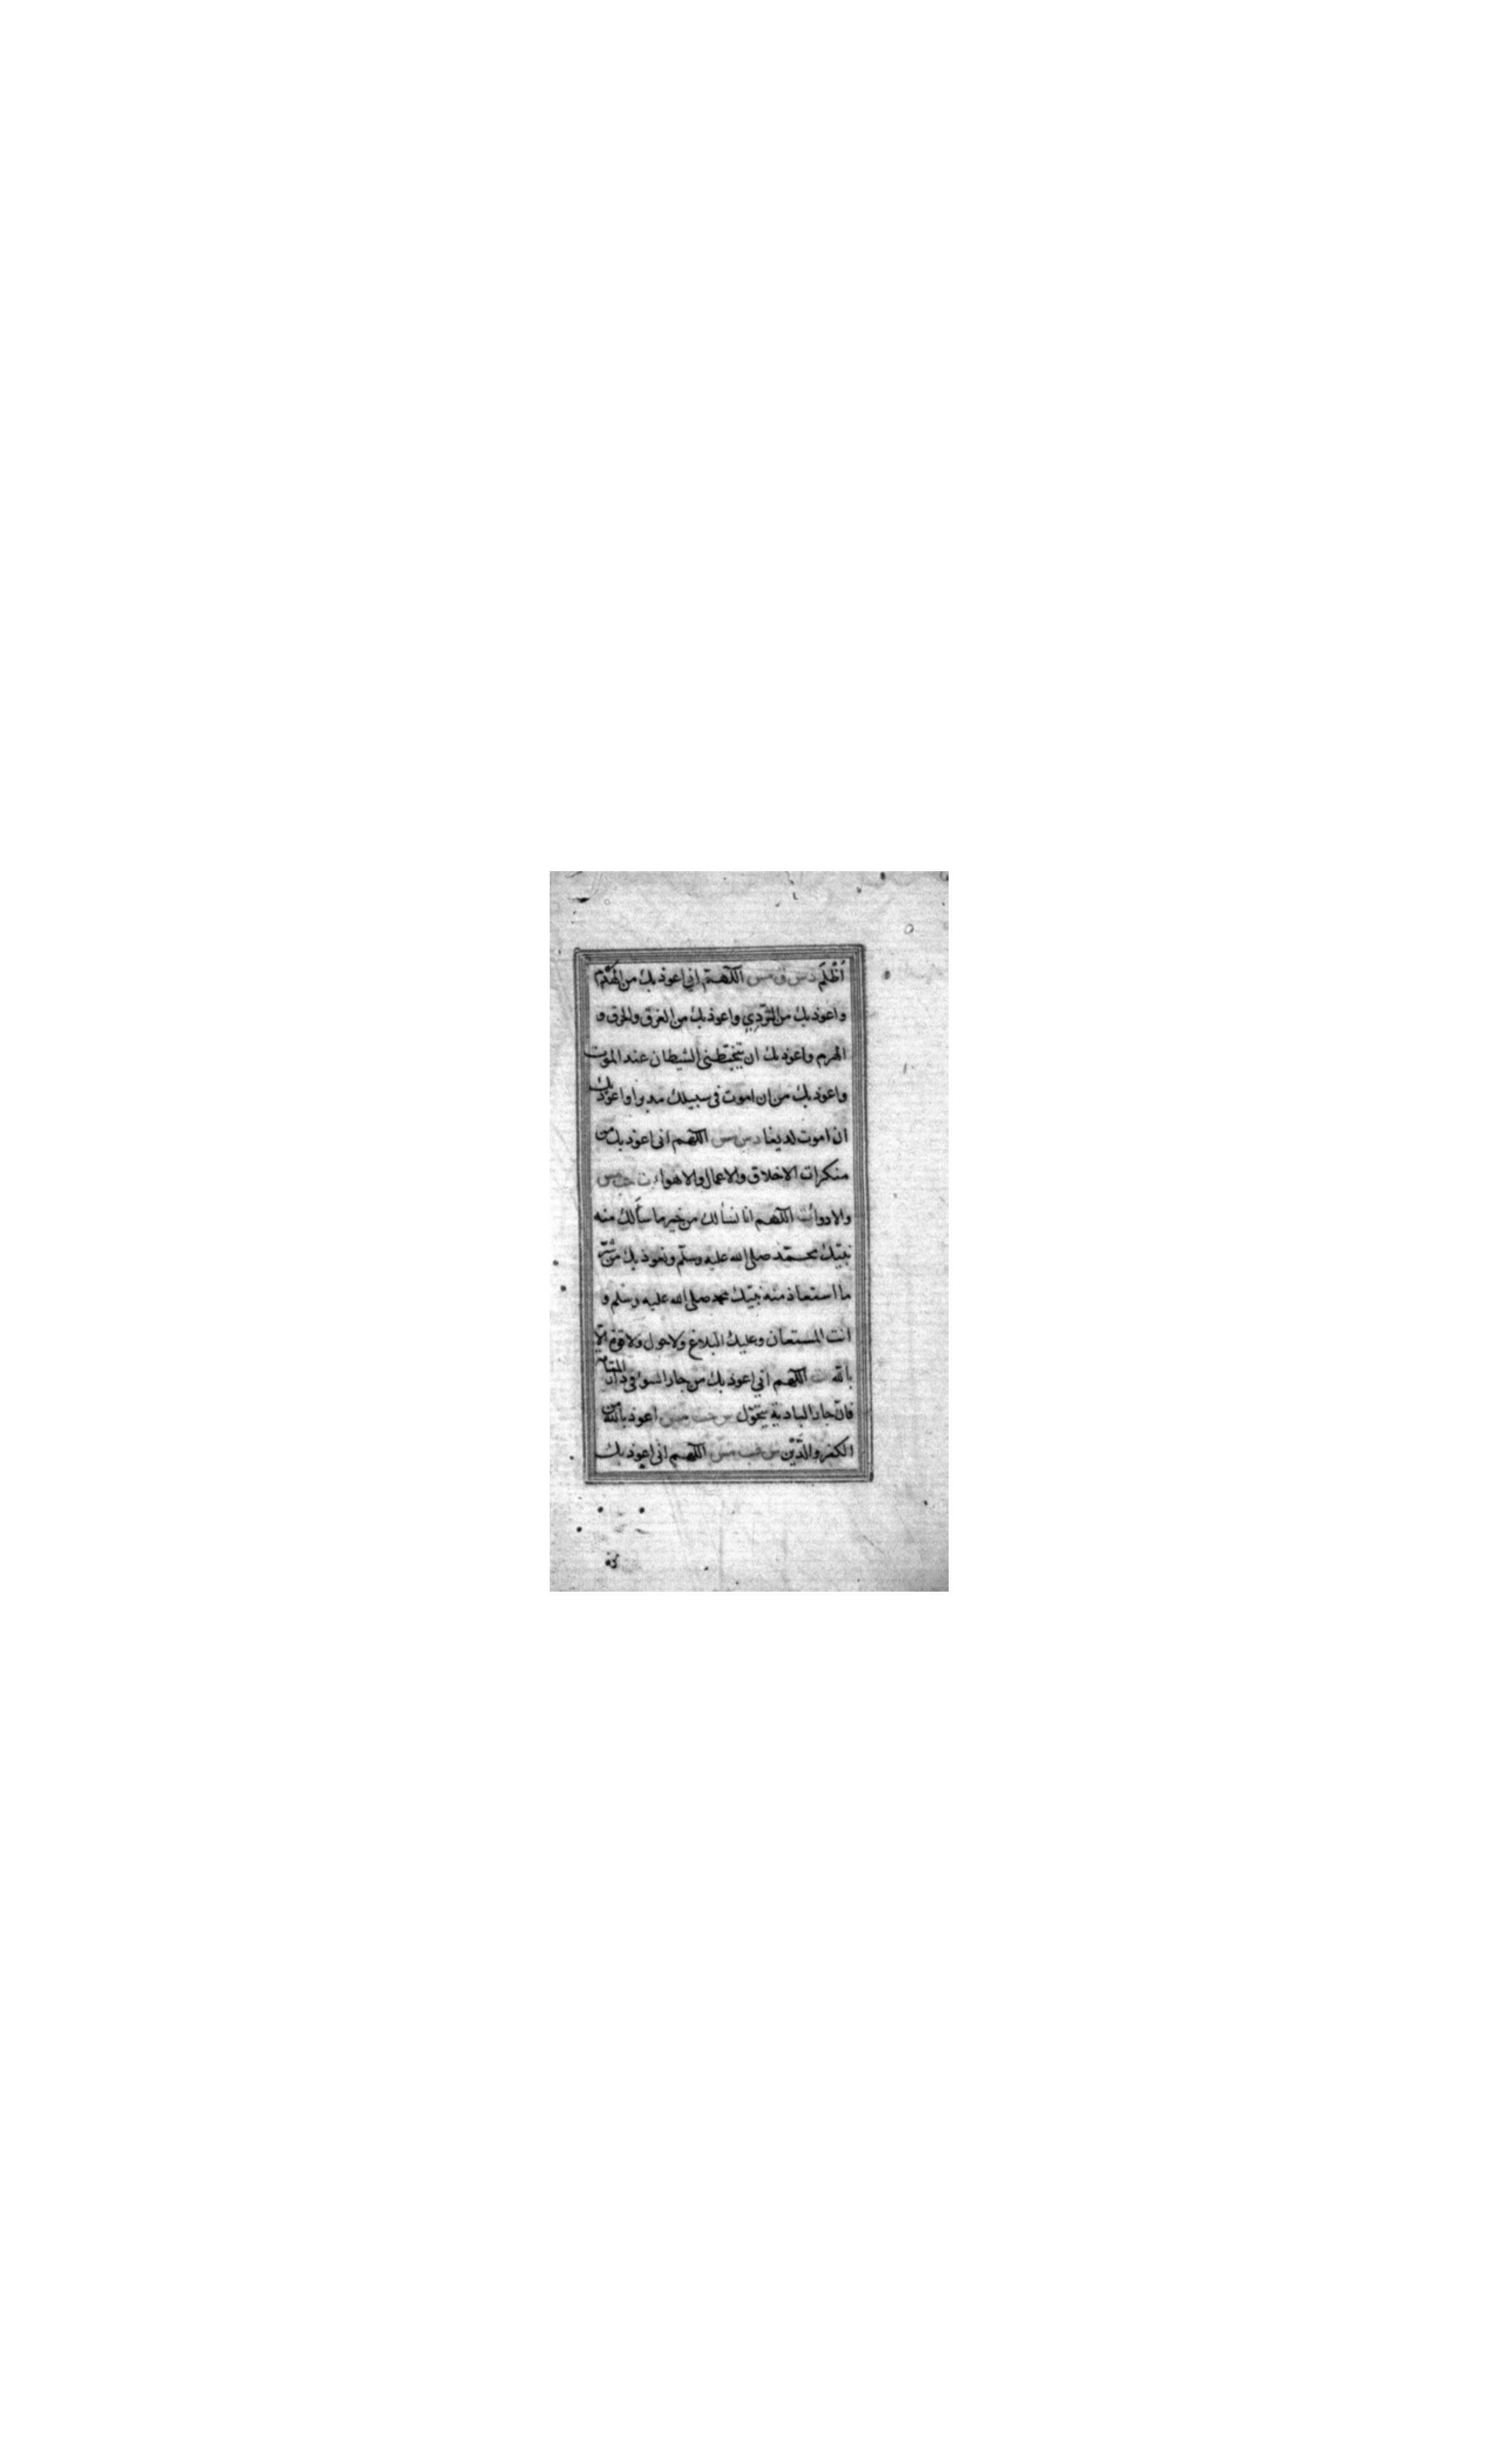 أُظْلَمَ د س ق مس اللّهمّ اني اعوذ بك من الهَدْم
واعوذ بك من التَّردِّي واعوذ بك من الغرق والحرق و
الهرم واعوذ بك ان يتخبّطنى الشيطان عند الموت
واعوذ بك من ان اموت فى سبيلك مدبرا واعوذ بك
ان اموت لديغا د س مس اللهّم انى اعوذ بك من
منكرات الاخلاق والاعمال والاهواء ت حب مس
والادواء ت اللهّم انا نسألك من خير ما سأَلك منه
نبيّك محمّد صلى الله عليه وسلّم ونعوذ بك من شرّ
ما استعاذ منه نبيّك محمد صلى الله عليه وسلم و
انت المستعان وعليك البلاغ ولا حول ولا قوة الّا
باللّه ت اللهّم اني اعوذ بك من جار السوء فى دار المقامة
فانّ جار البادية يتحوّل س حب مس اعوذ باللّه من
الكفر والدَّيْن س حب مس اللهّم انى اعوذ بك